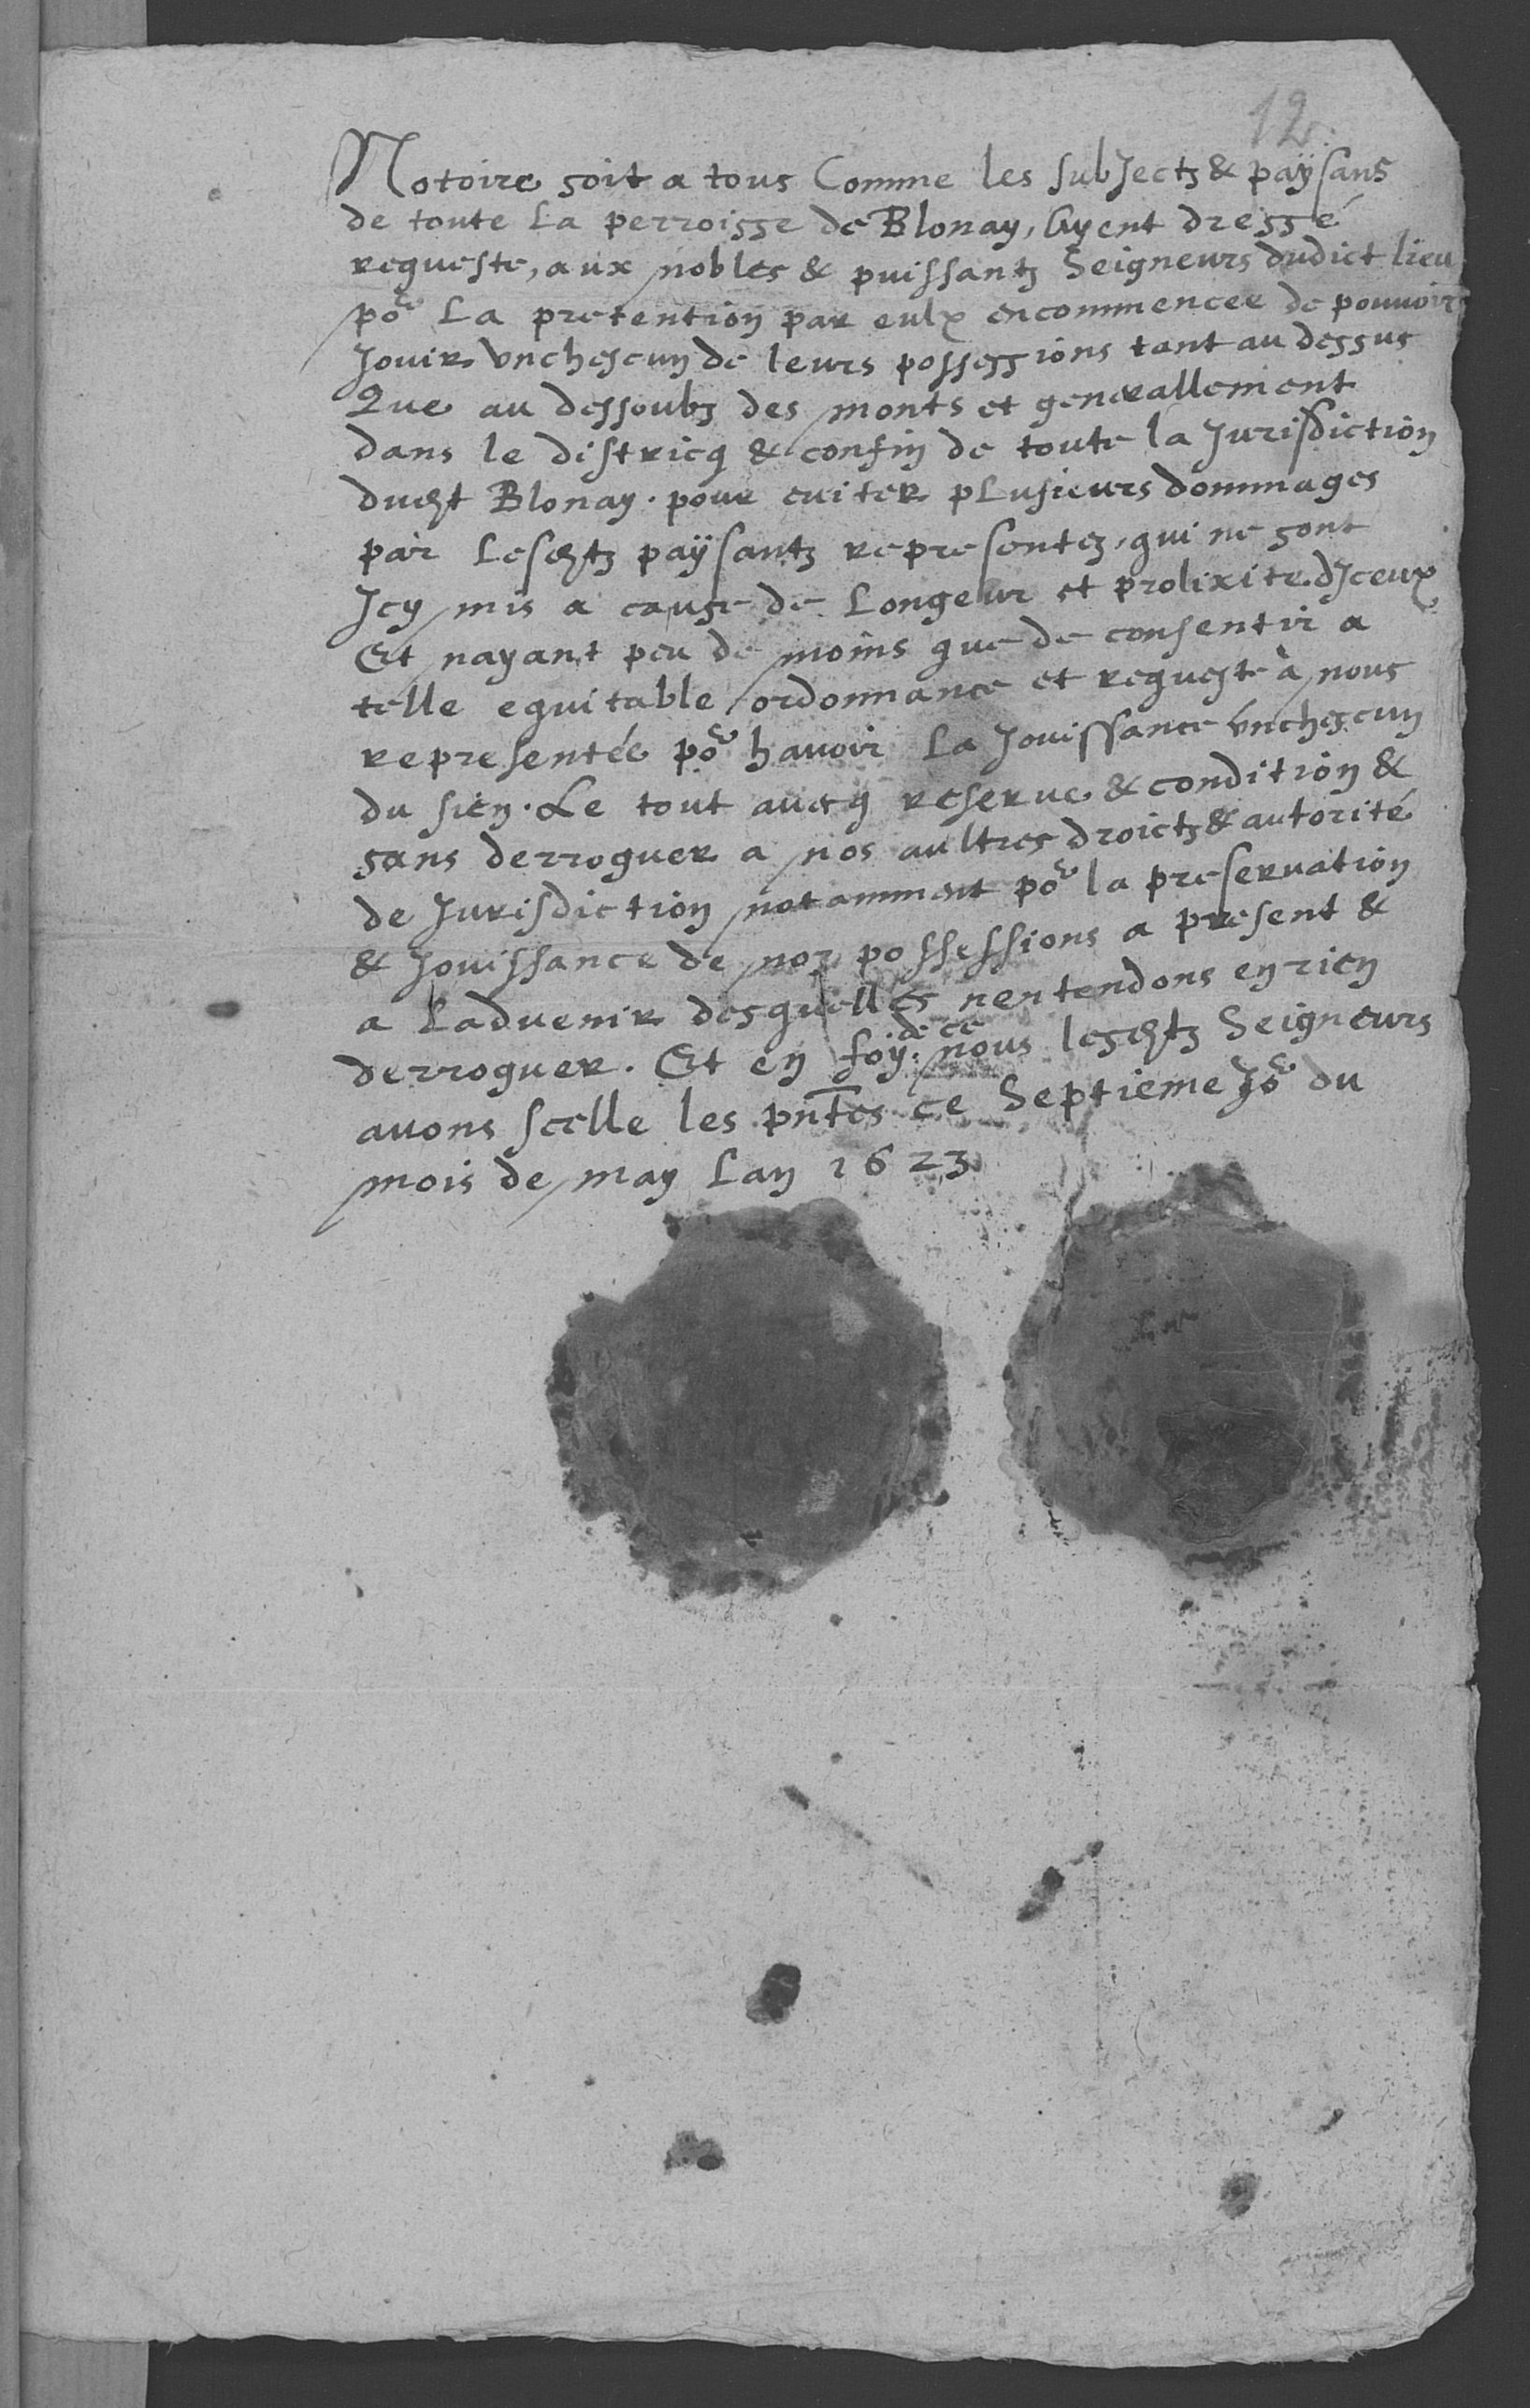 12.
Notoire soit a tous Comme les subJectz & paÿsans
de toute La perroisse de Blonay, Ayent dressé
requeste, aux nobles & puissantz Seigneurs dudict lieu
por La pretention par eulx encommencee de pouvoir
Jouir vnchescun de leurs possessions tant au dessus
Que au dessoubz des monts et generallement
dans le districq & confin de toute la Jurisdiction
dudt Blonay. pour euiter pLusieurs dommages
par Lesdtz paÿsantz representez, qui ne sont
Jcy mis a cause de Longeur et prolixite dJceux
Et nayant peu de moins que de consentir a
telle equitable ordonnance et requeste à nous
representée por havoir La Jouissance vnchescun
du sien. Le tout avecq reserue & condition &
sans derroguer a nos aultres droictz & autorité
de Jurisdiction notamment por la preseruation
& Jouissance de noz possessions a present &
a Ladvenir desquelles nentendons en rien
derroguer. Et en foy de ce. nous lesdtz Seigneurs
auons scelle les pntes ce Septieme Jor du
mois de may Lan 1623